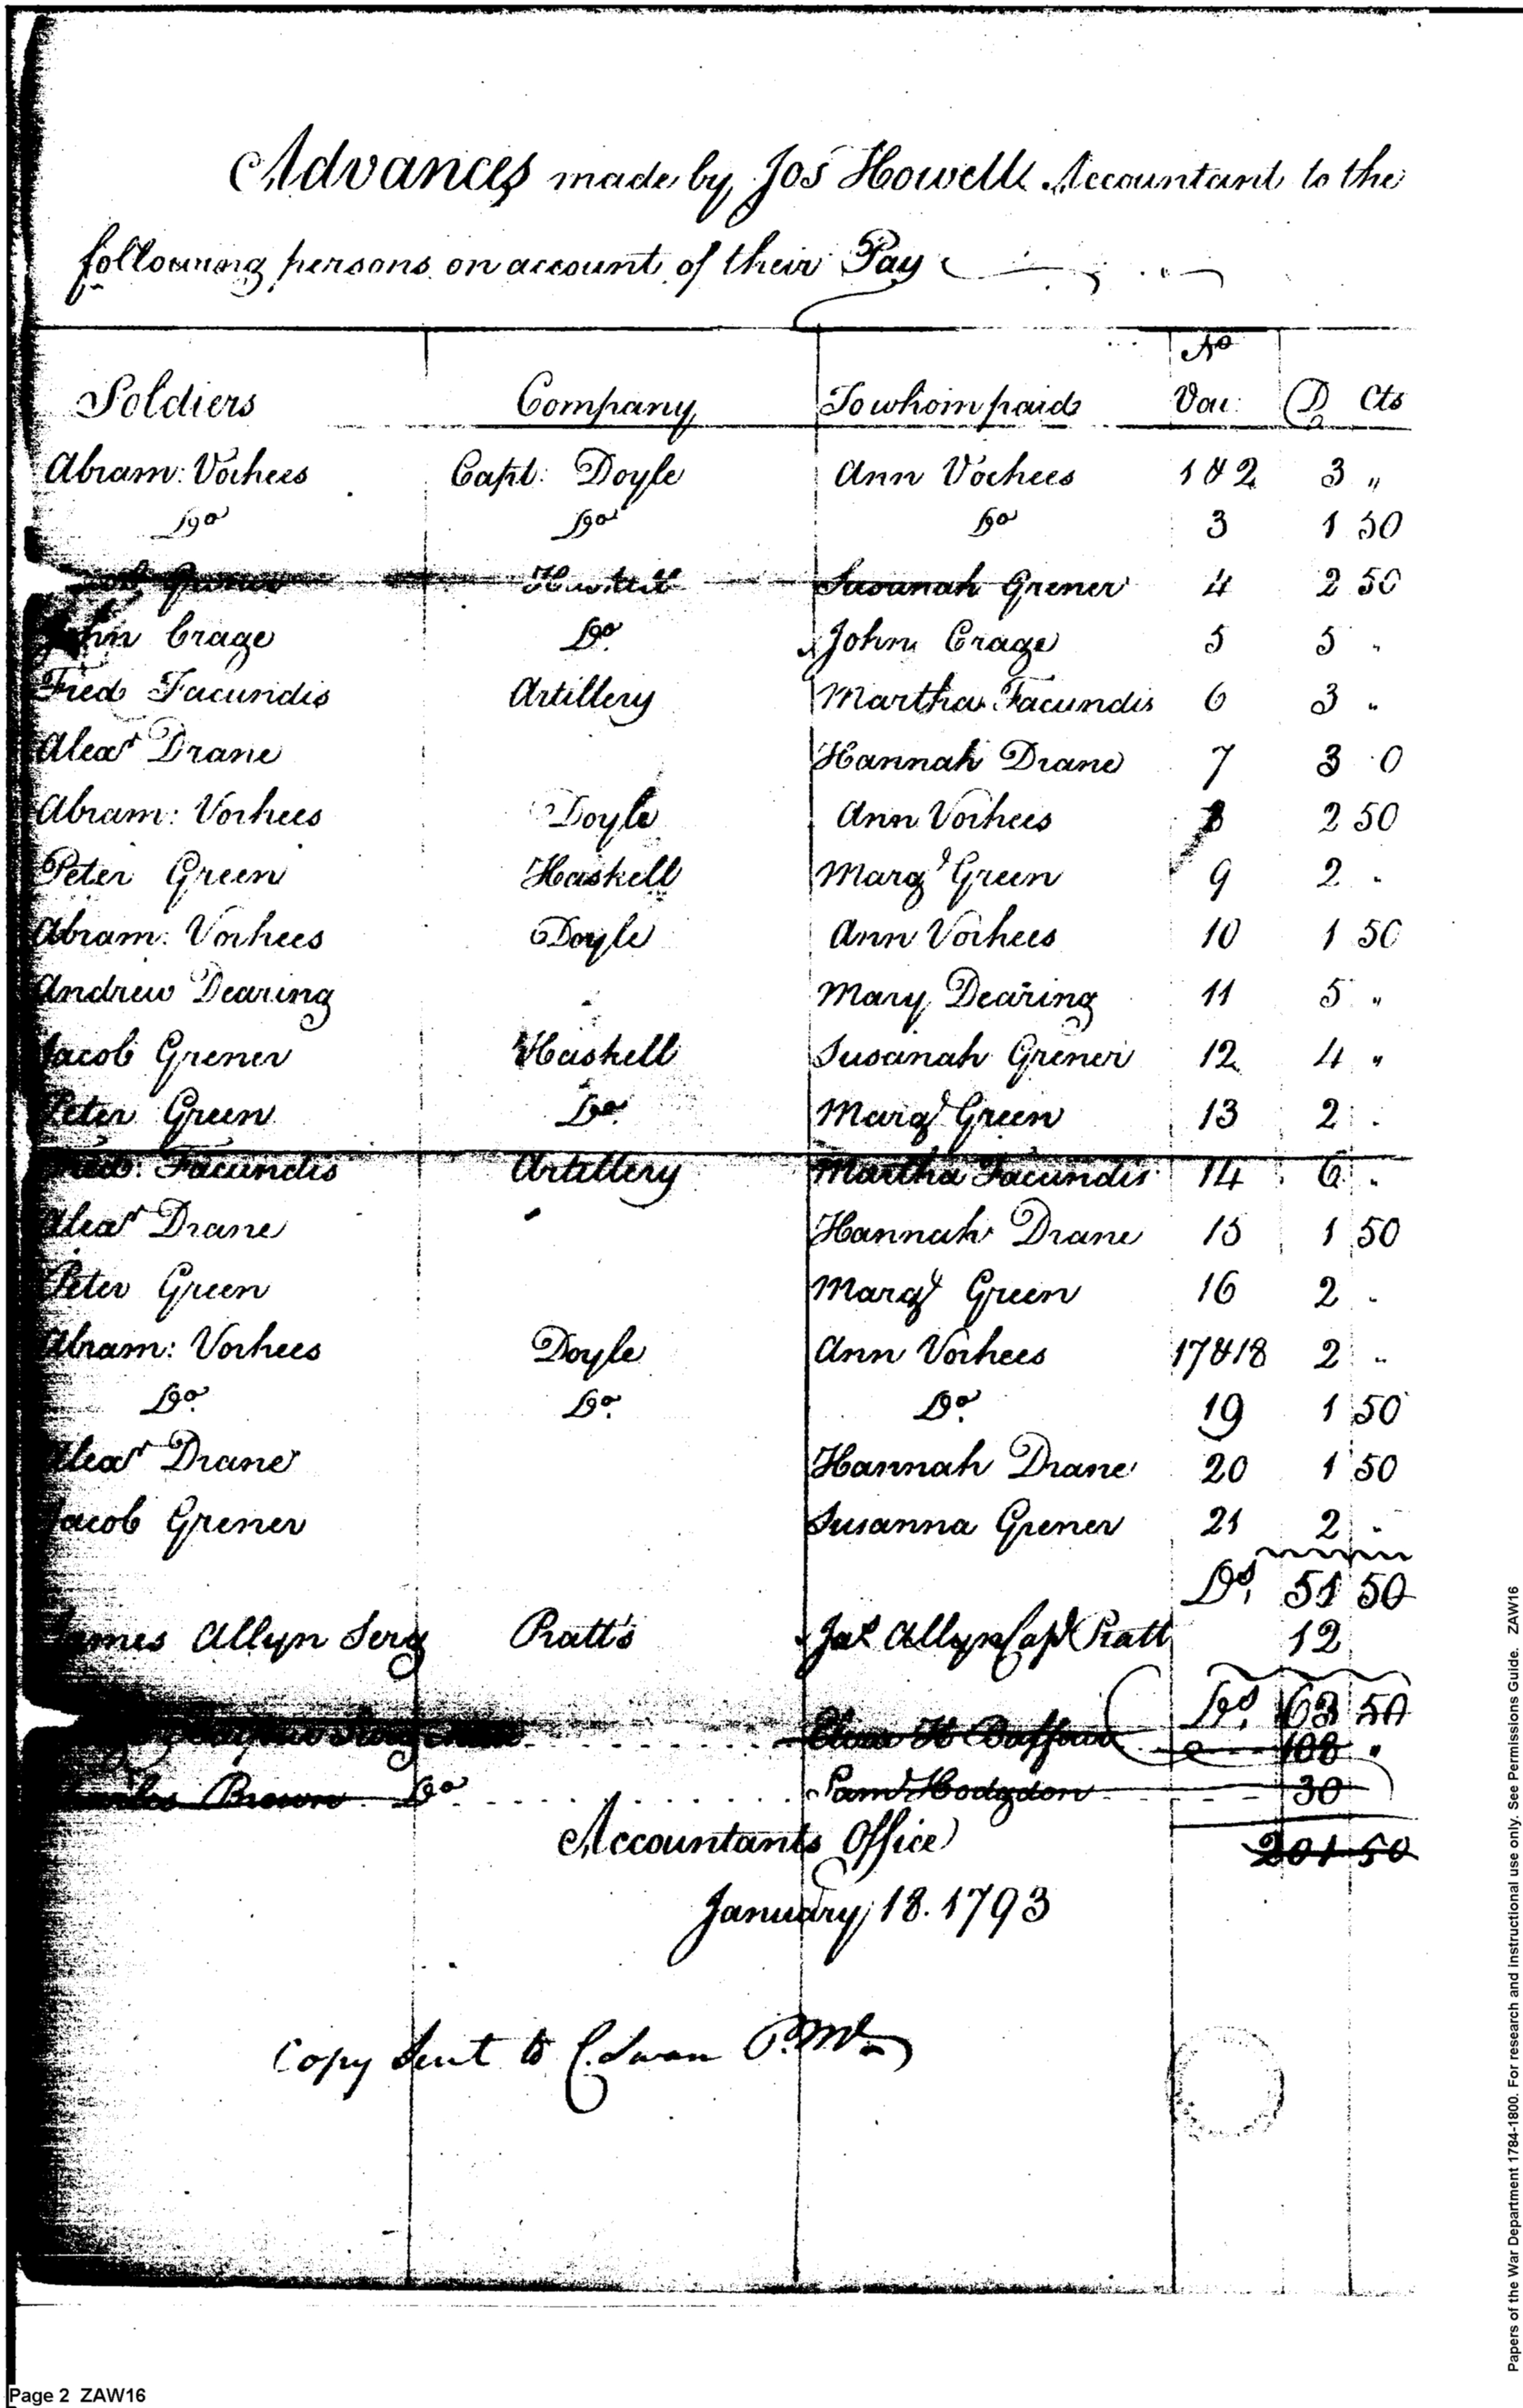 Advances made by Jos Howell Accountant to the
following persons on account of their Pay
No
Soldiers Company To whom paid Vou: D Cts
Abram: Vorhees Capt: Doyle Ann Vorhees 1 & 2 3 "
Do Do Do 3 1 50
Grener Susanah Grener 4 2 50
John Crage Do John Crage 5 5 "
Fred Facundis Artillery Martha Facundis 6 3 "
Alexr Drane Hannah Drane 7 3 0
Abram: Vorhees Doyle Ann Vorhees 8 2 50
Peter Green Haskell Margt Green 9 2 "
Abram: Vorhees Doyle Ann Vorhees 10 1 50
Andrew Dearing Mary Dearing 11 5 "
Jacob Grener Haskell Susanah Grener 12 4 "
Peter Green Do Margt Green 13 2 .
Fred: Facundis Artillery Martha Facundis 14 6 .
Alexr Drane Hannah Drane 15 1 50
Peter Green Margt Green 16 2 .
Abram: Vorhees Doyle Ann Vorhees 17 & 18 2 "
Do. Do. Do. 19 1 50
Alexr Drane Hannah Drane 20 1 50
Jacob Grener Susanna Grener 21 2 "
Ds. 51 50
James Allyn Serg Pratt's Jas Allyn Capt Pratt 12
Ds. 63 50
108 "
Brown Do Saml Hodgdon 30
201 50
Accountants Office
January 18. 1793
Copy Sent to C. Swan P.Mr
Papers of the War Department 1784-1800. For research and instructional use only. See Permissions Guide. ZAW16
Page 2 ZAW16